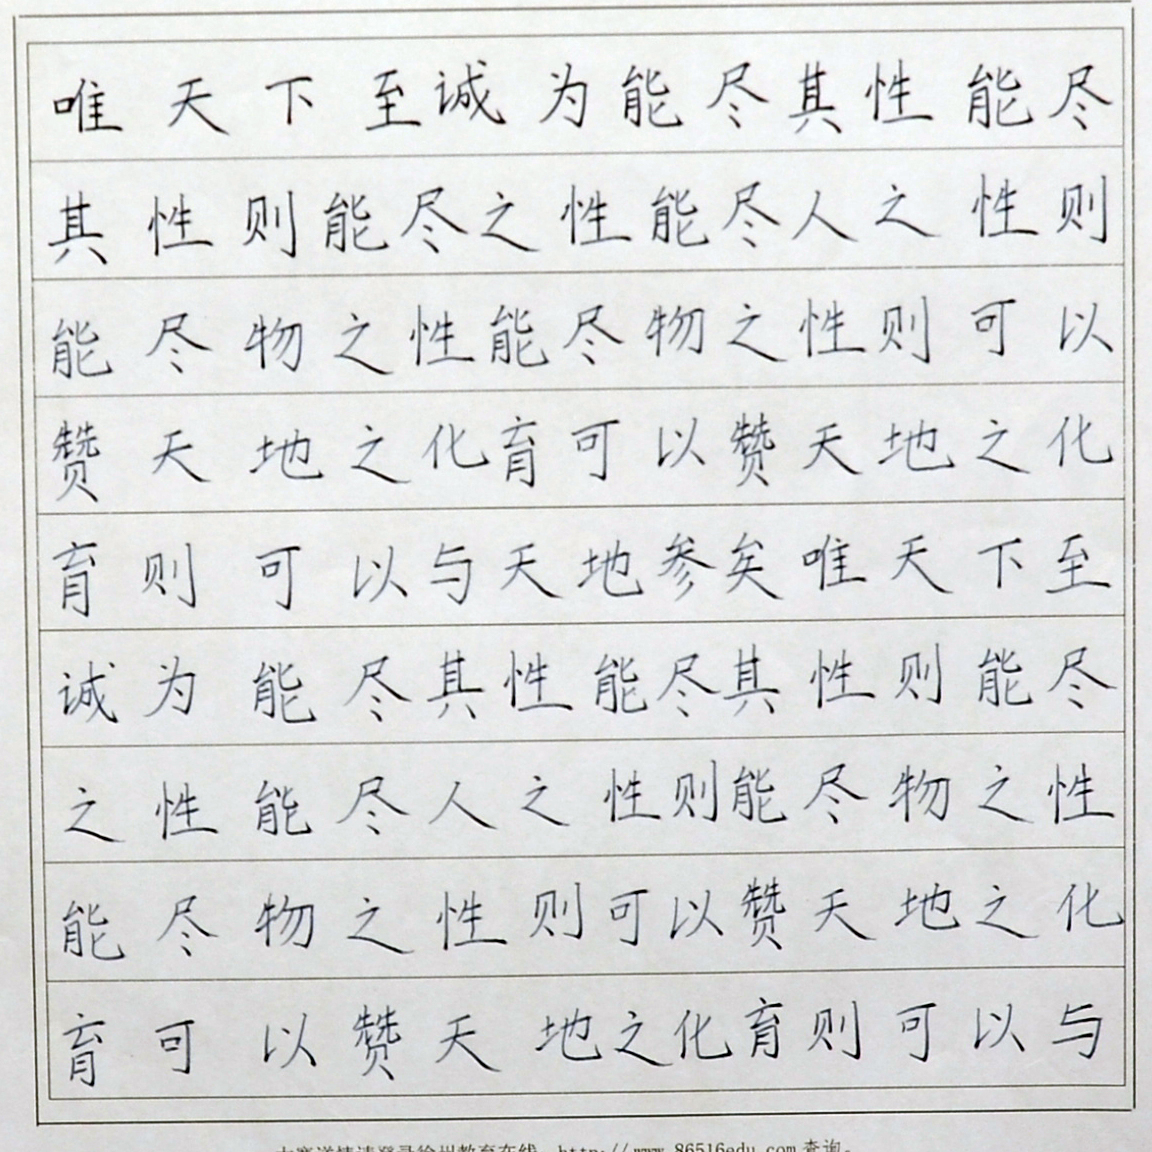 唯天下至诚为能尽其性能尽
其性则能尽之性能尽人之性则
能尽物之性能尽物之性则可以
赞天地之化育可以赞天地之化
育则可以与天地参矣唯天下至
诚为能尽其性能尽其性则能尽
之性能尽人之性则能尽物之性
能尽物之性则可以赞天地之化
育可以赞天地之化育则可以与
大赛详情请登录徐州教育在线 http://www.86516edu.com查询。